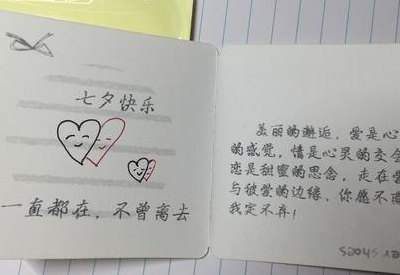 七夕快乐
一直都在，不曾离去
美丽的邂逅，爱是心
的感觉，情是心灵的交会
恋是甜蜜的思念，走在爱
与被爱的边缘，你愿不离
我定不弃！
shoes